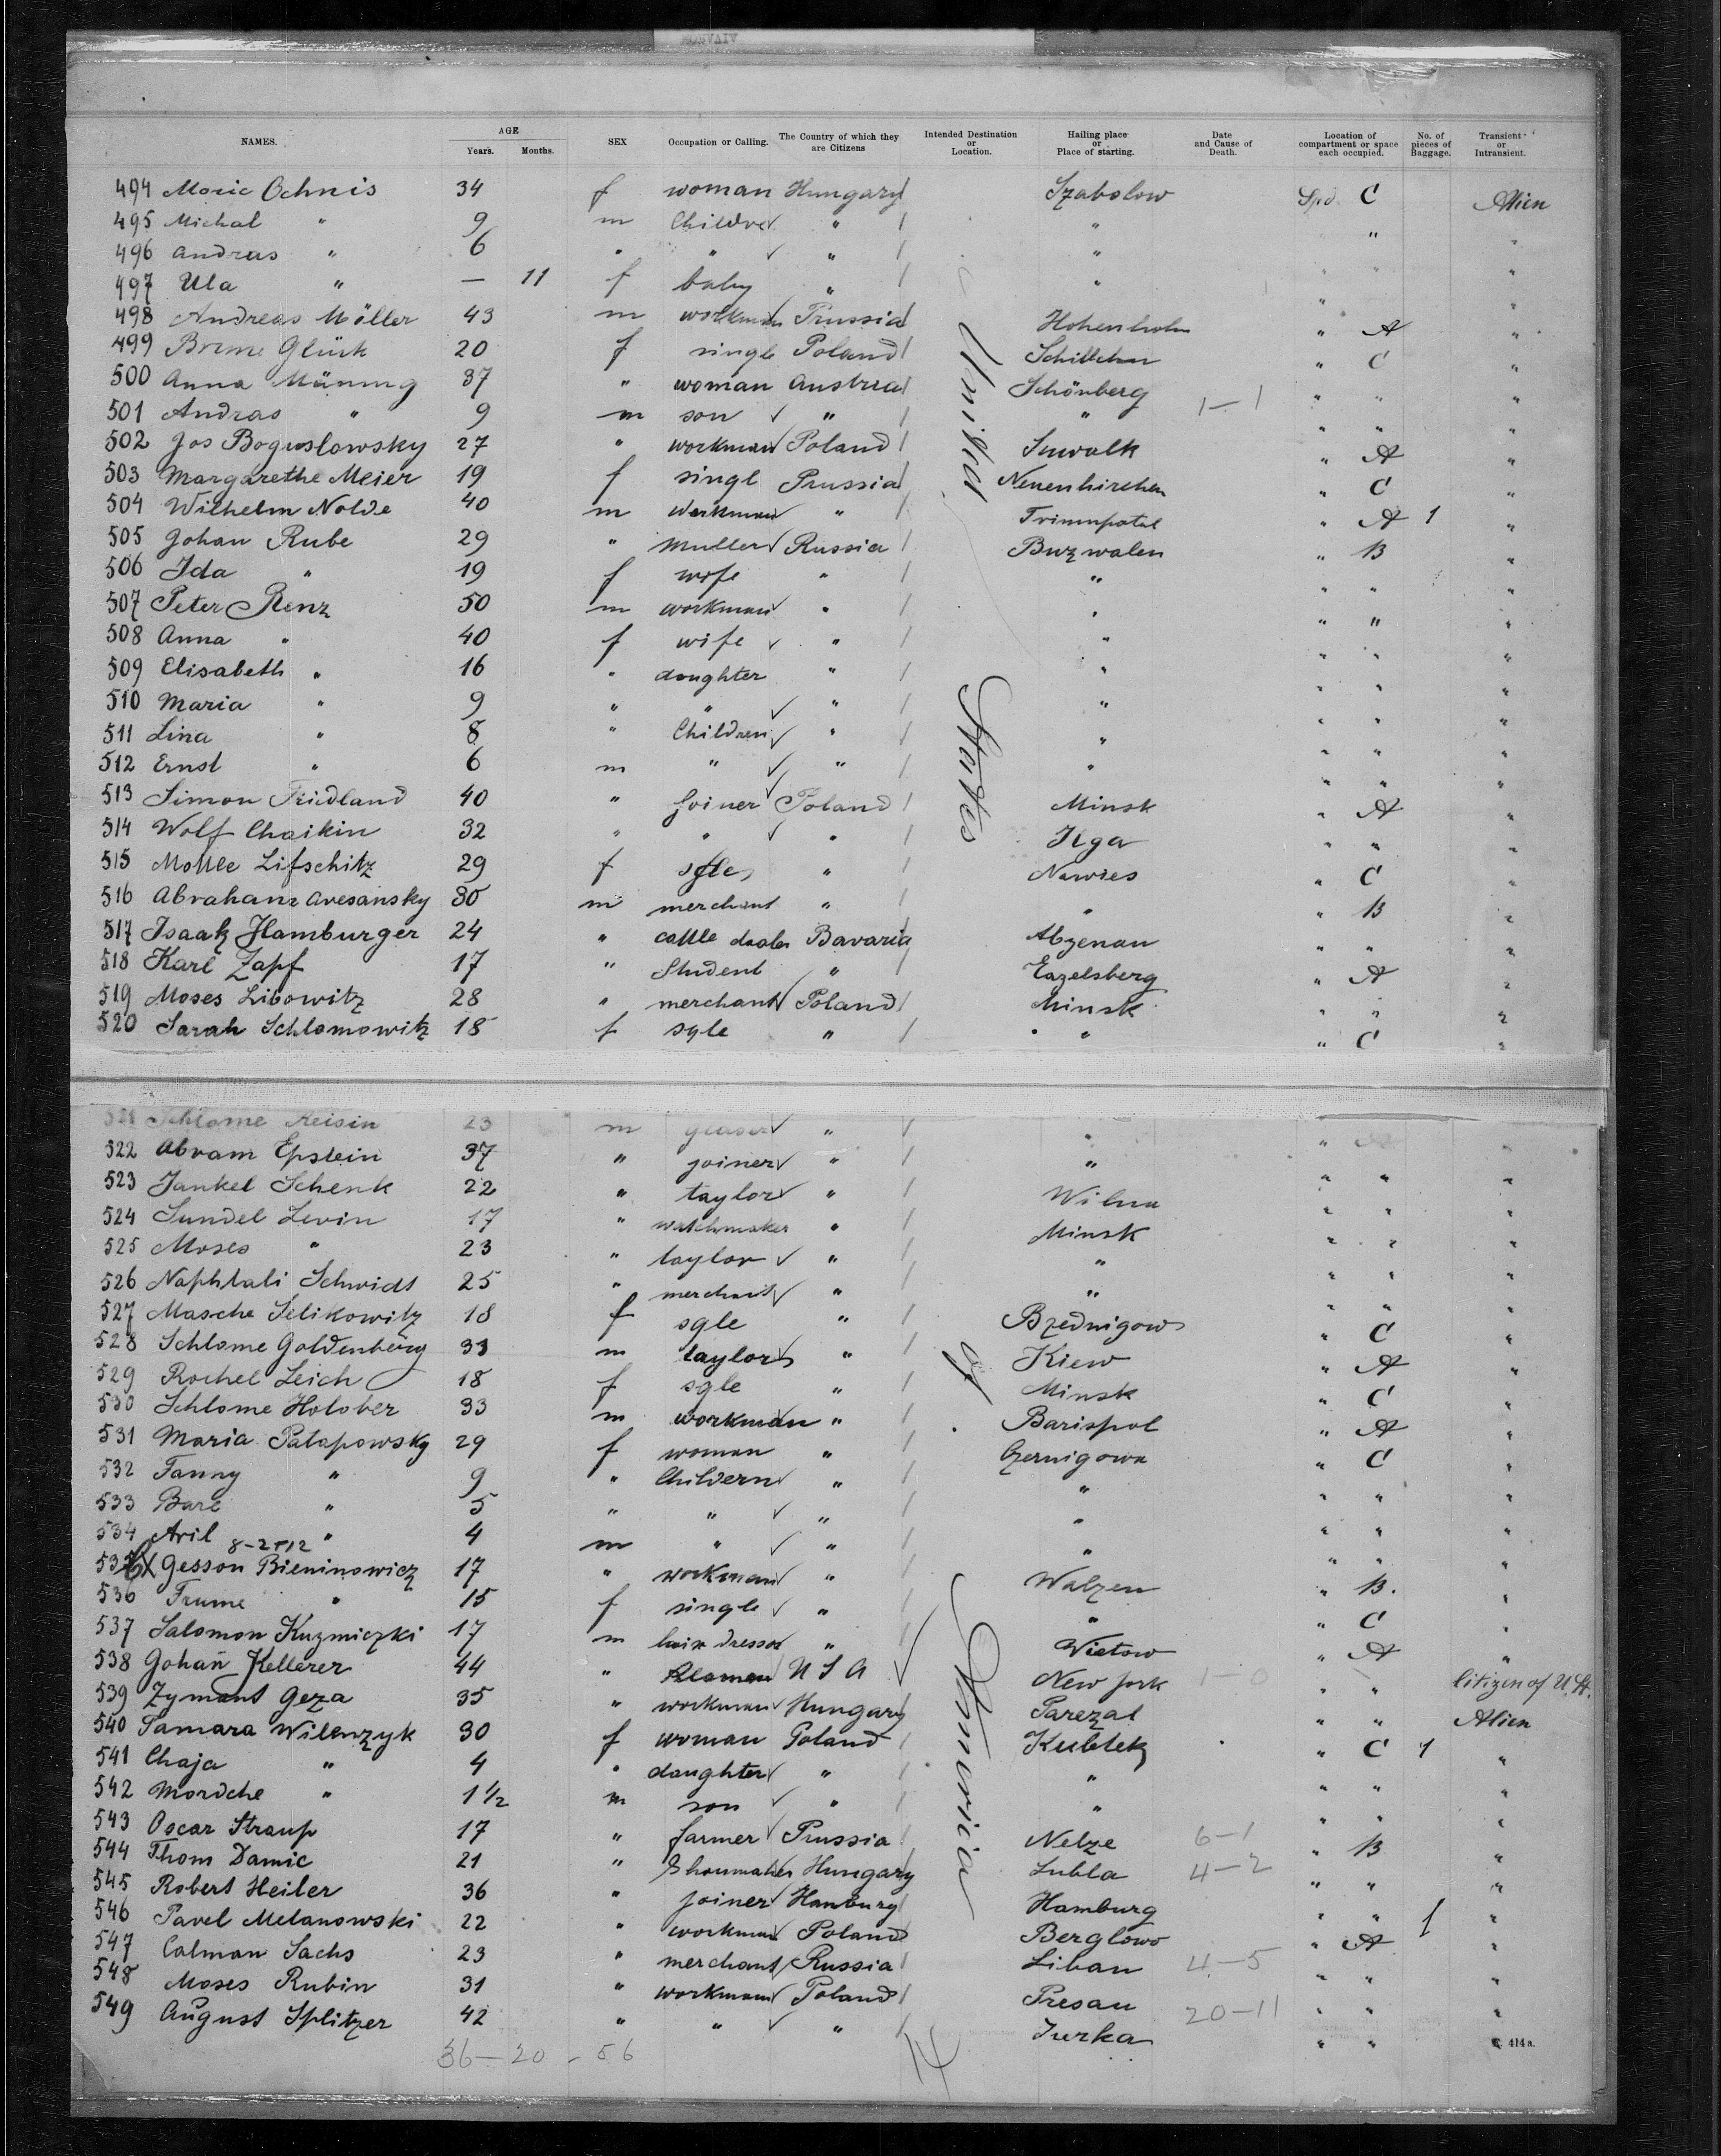 NAMES. AGE Years. Months. SEX Occupation or Calling. The Country of which they are Citizens Intended Destination or Location. Hailing place or Place of starting. Date and Cause of Death. Location of compartment or space each occupied. No. of pieces of Baggage. Transient or Intransient.
494 Marie Ochnis 34 f woman Hungary Szabolow Spd. C Alien
495 Michal " 9 m Childre " " " "
496 Andras " 6 " " " " " " "
497 Ula " — 11 f baby " " " "
498 Andreas Möller 43 m workman Prussia Hohenholm " A "
499 Glück 20 f single Poland Schillehn " C "
500 Anna 37 " woman Austria Schönberg " " "
501 Andras " 9 m son " " 1—1 " " "
502 Jos Boguslowsky 27 " workman Poland Suwalk " A "
503 Margarethe Meier 19 f singl Prussia Neuenkirchen " C "
504 Wilhelm Nolde 40 m Workman " " A 1 "
505 Johan Rube 29 " Muller Russia Buzwalen " B "
506 Ida " 19 f wife " " " " "
507 Peter Renz 50 m workman " " " " "
508 Anna " 40 f wife " " " " "
509 Elisabeth " 16 " daughter " " " " "
510 Maria " 9 " " " " " " "
511 Lina " 8 " Children " " " " "
512 Ernst " 6 m " " " " " "
513 Simon Friedland 40 " Joiner Poland Minsk " A "
514 Wolf Chaikin 32 " " " Ilga " " "
515 Motlle Lifschitz 29 f sgle " Nawies " C "
516 Abraham Avesansky 30 m merchant " " " B "
517 Isaak Hamburger 24 " cattle dealer Bavaria Abzenau " " "
518 Karl Zapf 17 " Student " Eazelsberg " A "
519 Moses Libowitz 28 " merchant Poland Minsk " " "
520 Sarah Schlomowitz 18 f sgle " " " C "
521 Schlome Reisin 23 m glaser " " " A "
522 Abram Epstein 37 " joiner " " " " "
523 Jankel Schenk 22 " taylor " Wilna " " "
524 Sundel Levin 17 " watchmaker " Minsk " " "
525 Moses " 23 " taylor " " " " "
526 Naphtali Schmidt 25 " merchant " " " " "
527 Masche Selikowitz 18 f sgle " Bzednigow " C "
528 Schlome Goldenberg 33 m taylor " Kiew " A "
529 Rochel Leich 18 f sgle " Minsk " C "
530 Schlome Holober 33 m workman " Barispol " A "
531 Maria Patapowsky 29 f woman " Czernigowa " C "
532 Fanny " 9 " Childern " " " " "
533 Bare " 5 " " " " " " "
534 Aril " 4 m " " " " " "
8-2712
535 X Gesson Bieninowicz 17 " workman " Walzen " B. "
536 Frume " 15 f single " " " C "
537 Salomon Kuzmiczki 17 m hair dresser " Wietow " A "
538 Johan Kellerer 44 " U S A New York 1—0 " " Citizen of U.St.
539 Zymant Geza 35 " workman Hungary Parezat " " Alien
540 Tamara Wilenzyk 30 f woman Poland Kublek " C 1 "
541 Chaja " 4 " daughter " " " " "
542 Mordche " 1 1/2 m son " " " " "
543 Oscar Straup 17 " farmer Prussia Nelze 6—1 " B "
544 Thom Damic 21 " Shoumaker Hungary Lubla 4—2 " " "
545 Robert Heiler 36 " joiner Hamburg Hamburg " " 1 "
546 Pavel Melanowski 22 " workman Poland Berglowo " A "
547 Calman Sachs 23 " merchant Russia Libau 4—5 " " "
548 Moses Rubin 31 " workman Poland Presau 20—11 " " "
549 August Splitzer 42 " " " Jurka " " "
United States of America
36—20-56
14
414a.